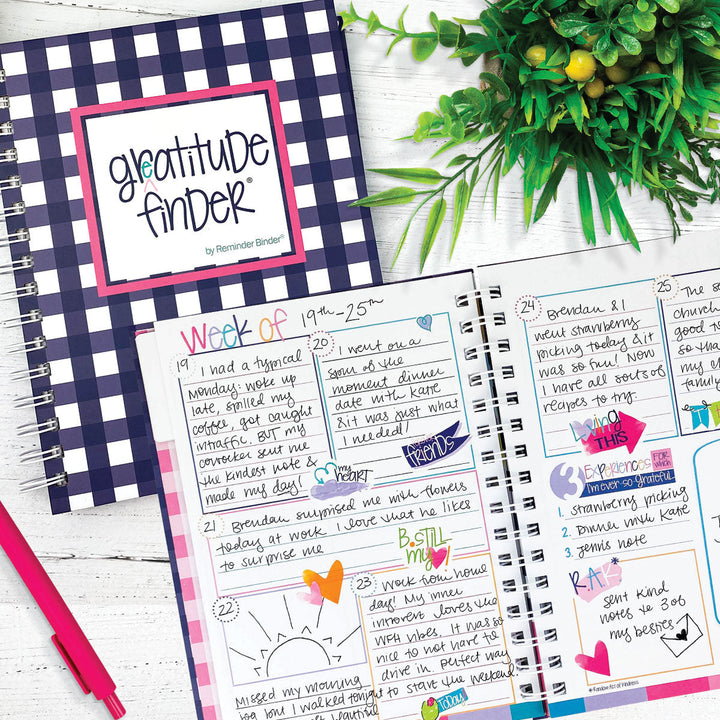 greatitude
finder®
by Reminder Binder®
Week of 19th-25th
19
I had a typical
Monday: woke up
late, spilled my
coffee, got caught
in traffic. BUT my
coworker sent me
the kindest note &
made my day!
my
heart
20
I went on a
spur of the
moment dinner
date with Katie
& it was just what
I needed!
friends
21
Brendan surprised me with flowers
today at work. I love that he likes
to surprise me
Be Still
my
22
Missed my morning
but I walked tonight
beautiful
23
Work from home
day! My inner
introvert loves the
WFH vibes. It was so
nice to not have to
drive in. Perfect way
to start the weekend.
Today
24
Brendan & I
went strawberry
picking today & it
was so fun! Now
I have all sorts of
recipes to try.
loving
THIS
25
The s
church
good to
so tha
my c
famil
3 Experiences FOR WHICH
I'm ever-so-grateful
1. Strawberry picking
2. Dinner with Katie
3. Jenn's note
R.A.K*
sent kind
notes to 3 of
my besties
*Random Act of Kindness